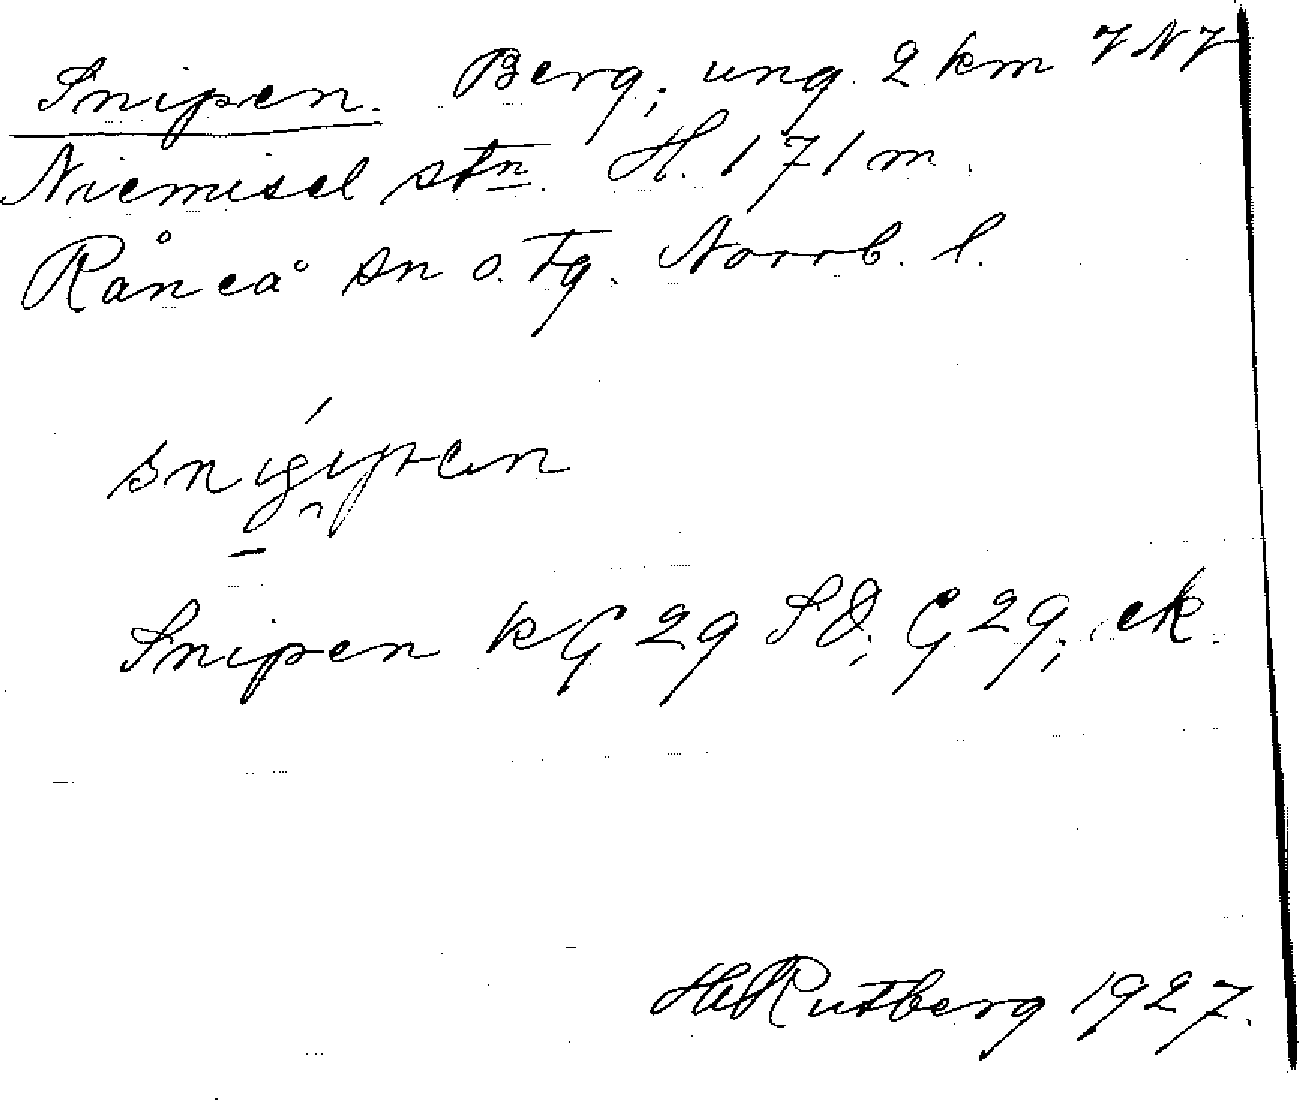 Snipen. Berg; ung. 2 km VNV
Niemisel stn. H. 171 m.
Råneå sn o. tg. Norrb. l.
Snipen KG 29 SO; G 29; ek.
H Rutberg 1927.